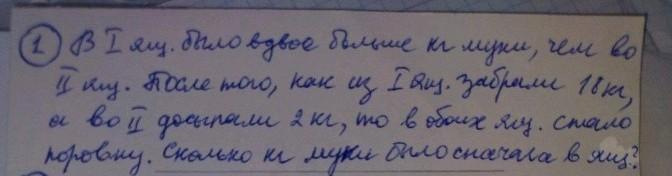 1 В I ящ. было вдвое больше кг муки, чем во
II ящ. После того, как из I ящ. забрали 18 кг,
а во II досыпали 2 кг, то в обоих ящ. стало
поровну. Сколько кг муки было сначала в ящ?